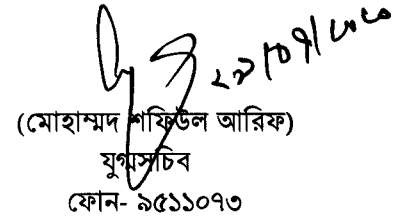 (মোহাম্মদ শফিউল আরিফ)
যুগ্মসচিব
ফোন- ৯৫১১০৭৩